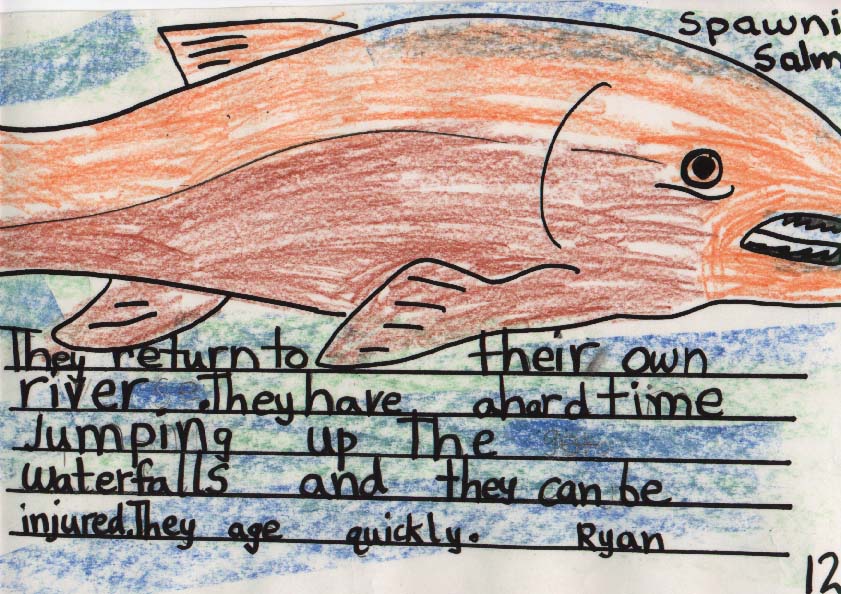 Spawni
Salm
They return to their own
river. They have a hard time
Jumping up The
waterfalls and they can be
injured. They age quickly. Ryan
12